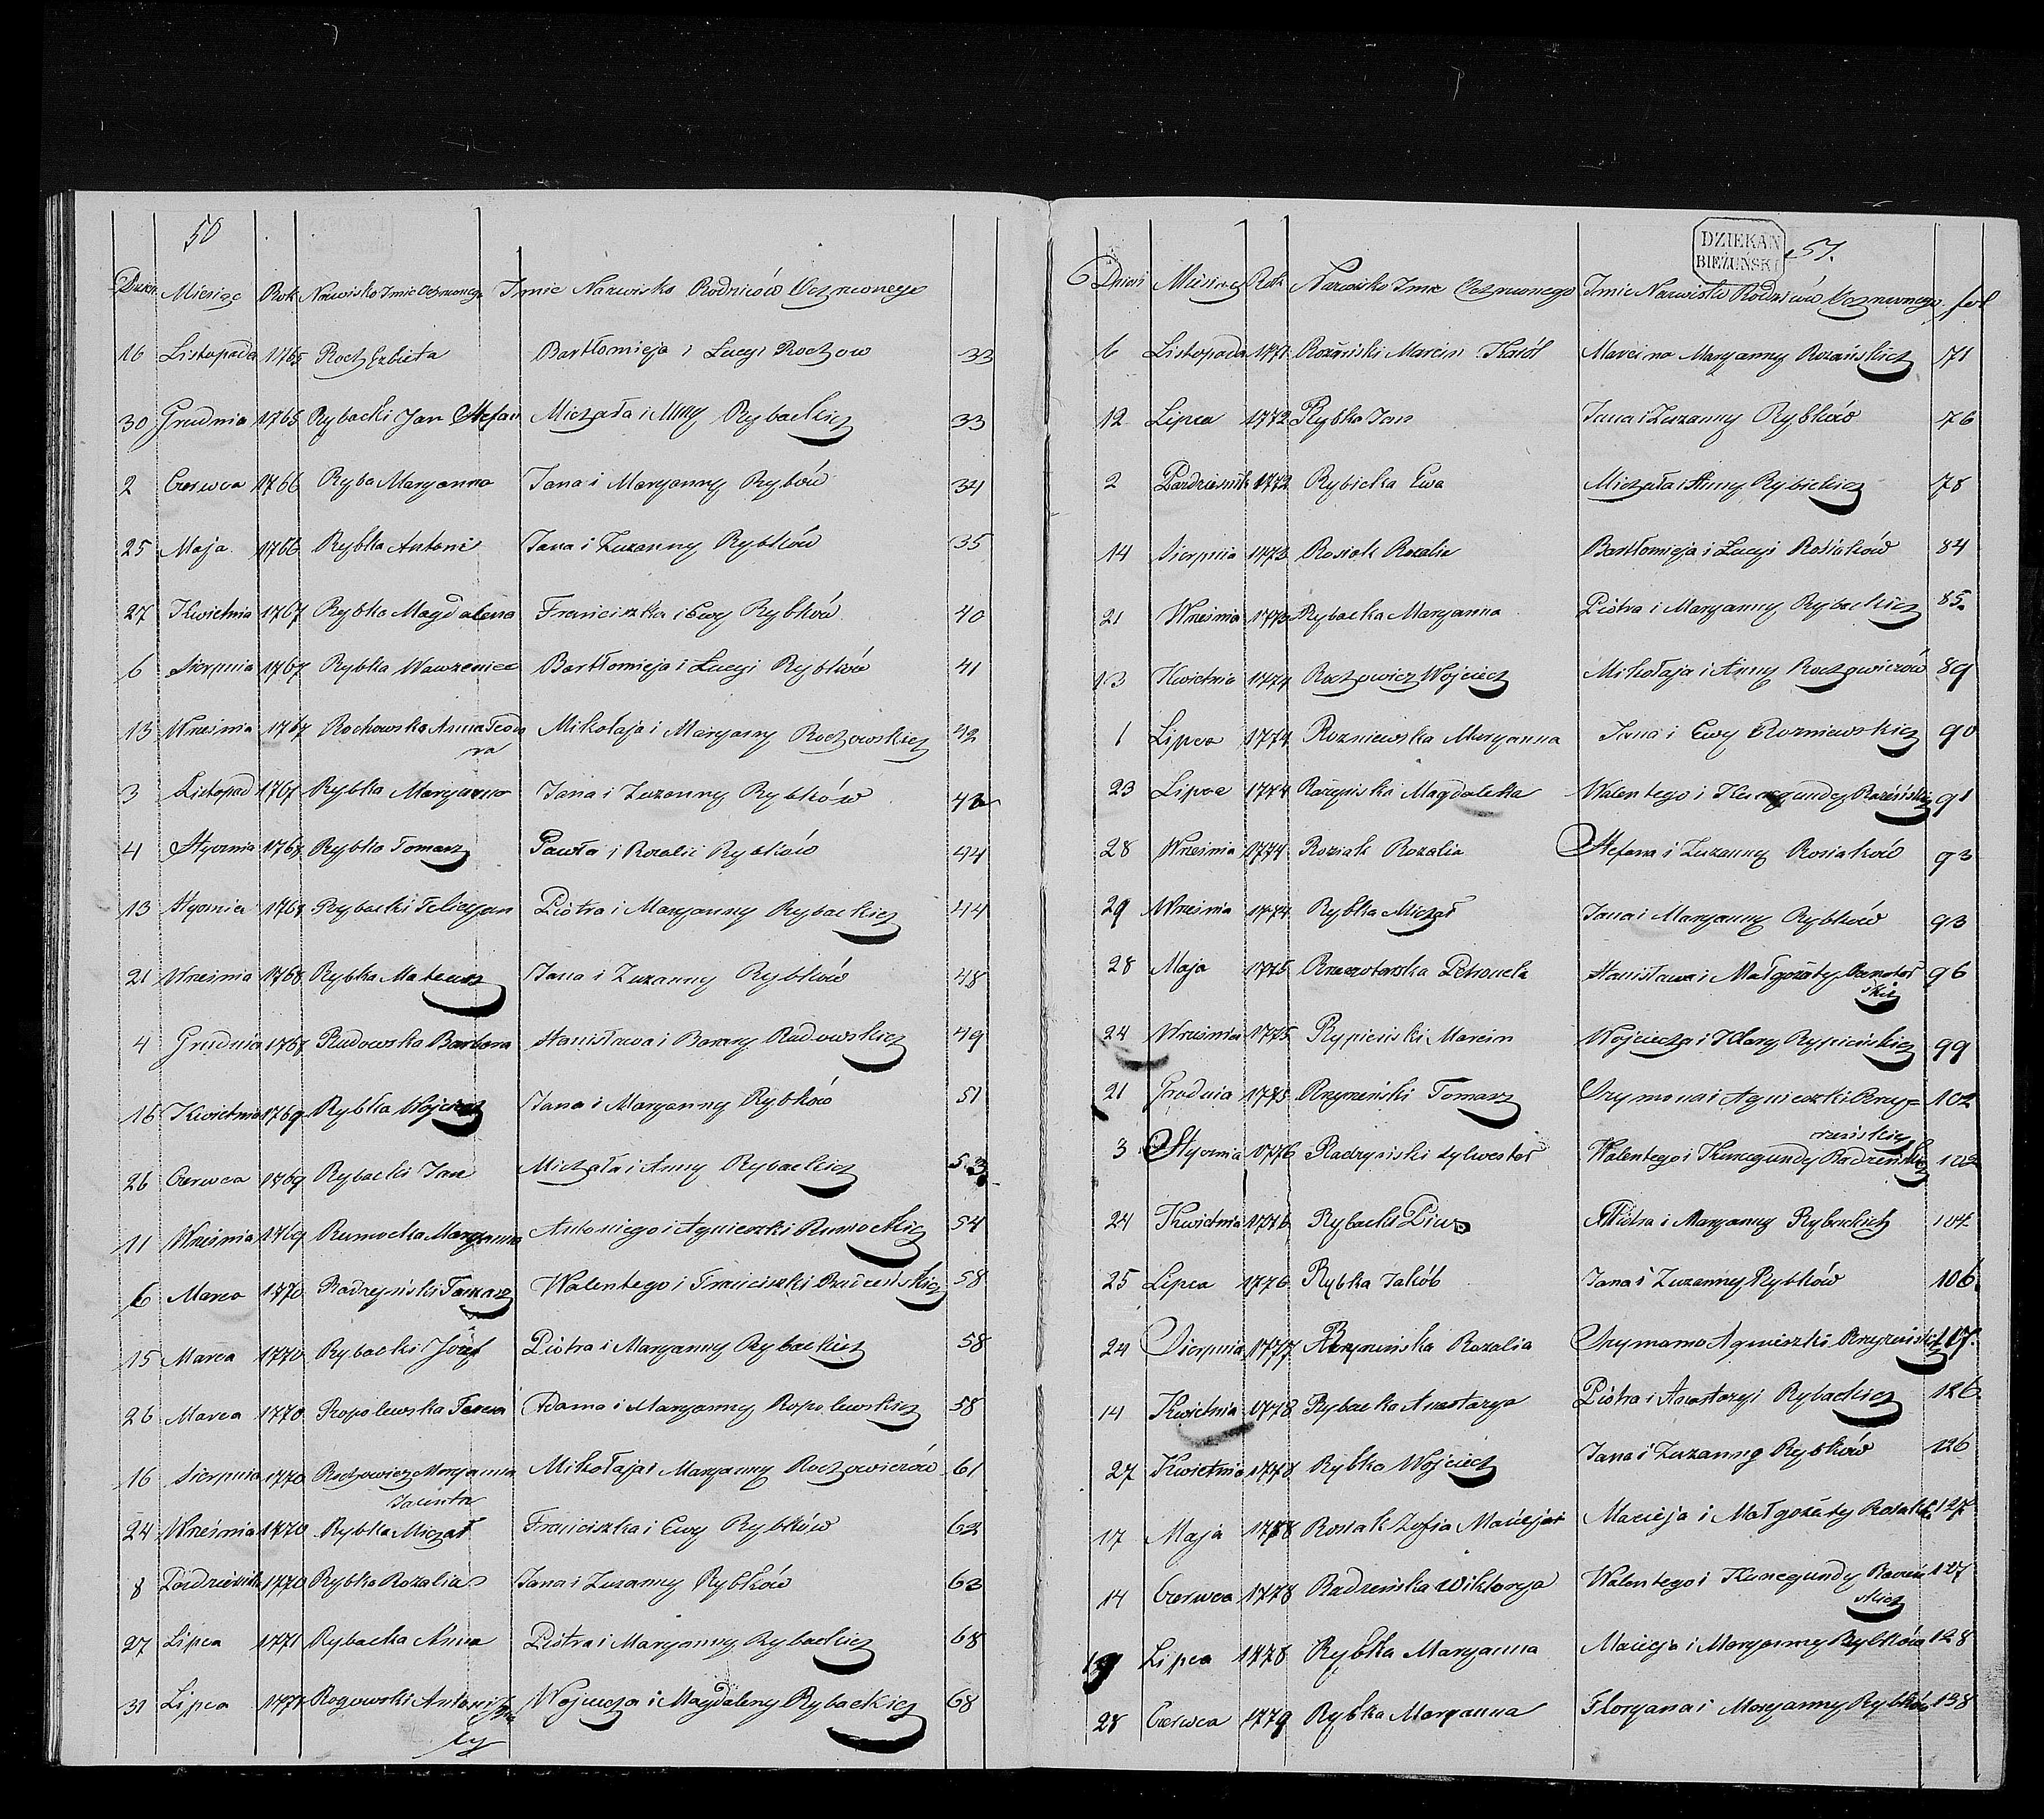 50
Dzień Miesiąc Rok Nazwisko Imie Ochrzconego Imie Nazwisko Rodziców Ochrzconego
16 Listopada 1765 Roch Elzbieta Bartłomieja i Łucyi Rochow 33
30 Grudnia 1765 Rybacki Jan Stefan Michała i Rybackich 33
2 Czerwca 1766 Ryba Maryanna Jana i Maryanny Rybów 34
25 Maja 1766 Rybka Antoni Jana i Zuzanny Rybków 35
27 Kwietnia 1767 Rybka Magdalena Franciszka i Ewy Rybków 40
6 Sierpnia 1767 Rybka Wawrzeniec Bartłomieja i Łucyi Rybków 41
13 Wreśnia 1767 Rochowska Anna Teodo Mikołaja i Maryany Rochowskich 42
ra
3 Listopad 1767 Rybka Maryanna Jana i Zuzanny Rybków 42
4 Stycznia 1768 Rybka Tomasz Pawła i Rozalii Rybków 44
13 Stycznia 1768 Rybacki Felicyan Piotra i Maryanny Rybackich 44
21 Wreśnia 1768 Rybka Mateusz Jana i Zuzanny Rybków 48
4 Grudnia 1768 Rudowska Barbara Stanisława i Barary Rudowskich 49
16 Kwietnia 1769 Rybka Wojciech Jana i Maryanny Rybków 51
26 Czerwca 1769 Rybacki Jan Michała i Anny Rybackich 53
11 Wreśnia 1769 Rumocka Maryanna Antoniego i Agnieszki Rumockich 54
6 Marca 1770 Radzyński Walentego i Franciszki Radzeńskich 58
15 Marca 1770 Rybacki Józef Piotra i Maryanny Rybackich 58
26 Marca 1770 Ropolewska Teresa Adama i Maryanny Ropolewskich 58
16 Sierpnia 1770 Rochowicz Maryanna Mikołaja i Maryanny Rochowiczów 61
Jacenta
24 Wreśnia 1770 Rybka Michał Franciszka i Ewy Rybków 62
8 Pazdziernik 1770 Rybka Rozalia Jana i Zuzanny Rybków 63
27 Lipca 1771 Rybacka Anna Piotra i Maryanny Rybackich 68
31 Lipca 1771 Rogowski Antoni Wojciecha i Magdaleny Rybackich 68
DZIEKAN
BIEŻUŃSKI
51.
Dzień Miesiąc Rok Nazwisko Imie Ochrzconego Imie Nazwisko Rodziców Ochrzconego fol
6 Listopada 1771 Rozyński Marcin Karól Marcina Maryanny Rozańskich 71
12 Lipca 1772 Rybka Jan Jana i Zuzanny Rybków 76
2 Pazdziernik 1772 Rybicka Ewa Michała i Anny Rybickich 78
14 Sierpnia 1773 Rosiak Rozalia Bartłomieja i Łucyi Rosiaków 84
21 Wreśnia 1773 Rybacka Maryanna Piotra i Maryanny Rybackich 85.
13 Kwietnia 1774 Rochowicz Wojciech Mikołaja i Anny Rochowiczów 89
1 Lipca 1774 Rozniewska Maryanna Jana i Ewy Rozniewskich 90
23 Lipca 1774 Rozyńska Magdalena Walentego i Kunegundy Rozińskich 91
28 Wreśnia 1774 Roziak Rozalia Stefana i Zuzanny Rosiaków 93
29 Wreśnia 1774 Rybka Michał Jana i Maryanny Rybków 93
28 Maja 1775 Petronela Stanisława i Małgorzaty 96
skich
24 Wreśnia 1775 Rypieński Marcin Wojciecha i Klary Rypieńskich 99
21 Grudnia 1775 Rzyzeński Tomasz Szymona i Agnieszki Rzy= 102
zeńskich
3 Stycznia 1776 Radzyński Sylwester Walentego i Kunegundy Radzeńskich 102
24 Kwietnia 1776 Rybacki Pius Piotra i Maryanny Rybackich 104
25 Lipca 1776 Rybka Jakób Jana i Zuzanny Rybków 106.
24 Sierpnia 1777 Rzyzeńska Rozalia Szymona Agnieszki Rzyzeńskich 117.
14 Kwietnia 1778 Rybacka Anastazya Piotra i Anastazyi Rybackich 126.
27 Kwietnia 1778 Rybka Wojciech Jana i Zuzanny Rybków 126
17 Maja 1778 Rosiak Zofia Macieja i Małgorzaty 127
14 Czerwca 1778 Radzeńska Wiktorya Walentego i Kunegundy 127
skich
19 Lipca 1778 Rybka Maryanna Macieja i Maryanny Rybków 128
28 Czerwca 1779 Rybka Maryanna Floryana i Maryanny Rybków 138